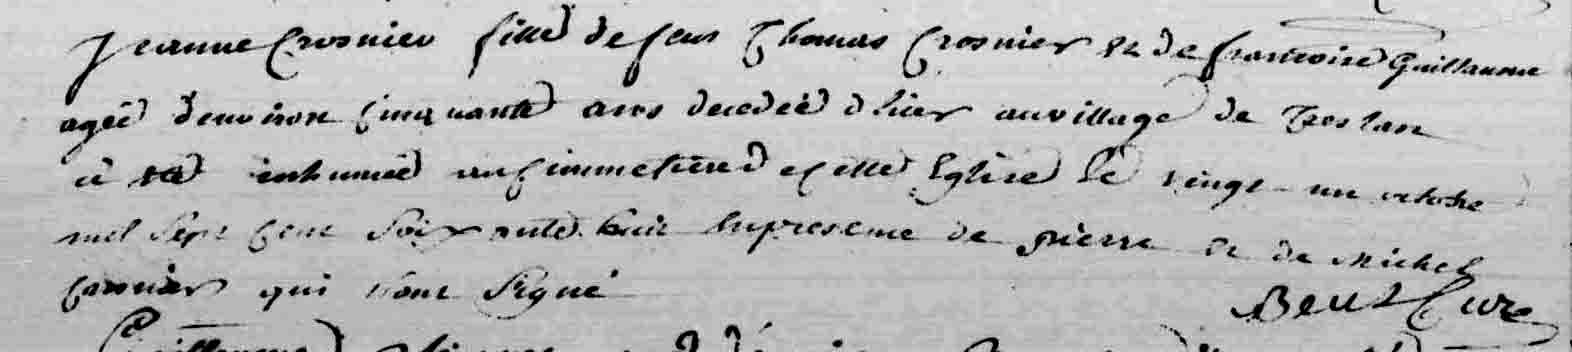 Jeanne Crosnier fille de feus Thomas Crosnier et de francoise Guillaume
agée d'environ cinquante ans decedée d'hier au village de
a eté inhumée au cimmetiere de cette Eglise le vingt un octobre
mil sept cent soixante huit en presence de pierre et de Michel
qui n'ont signé
Curé